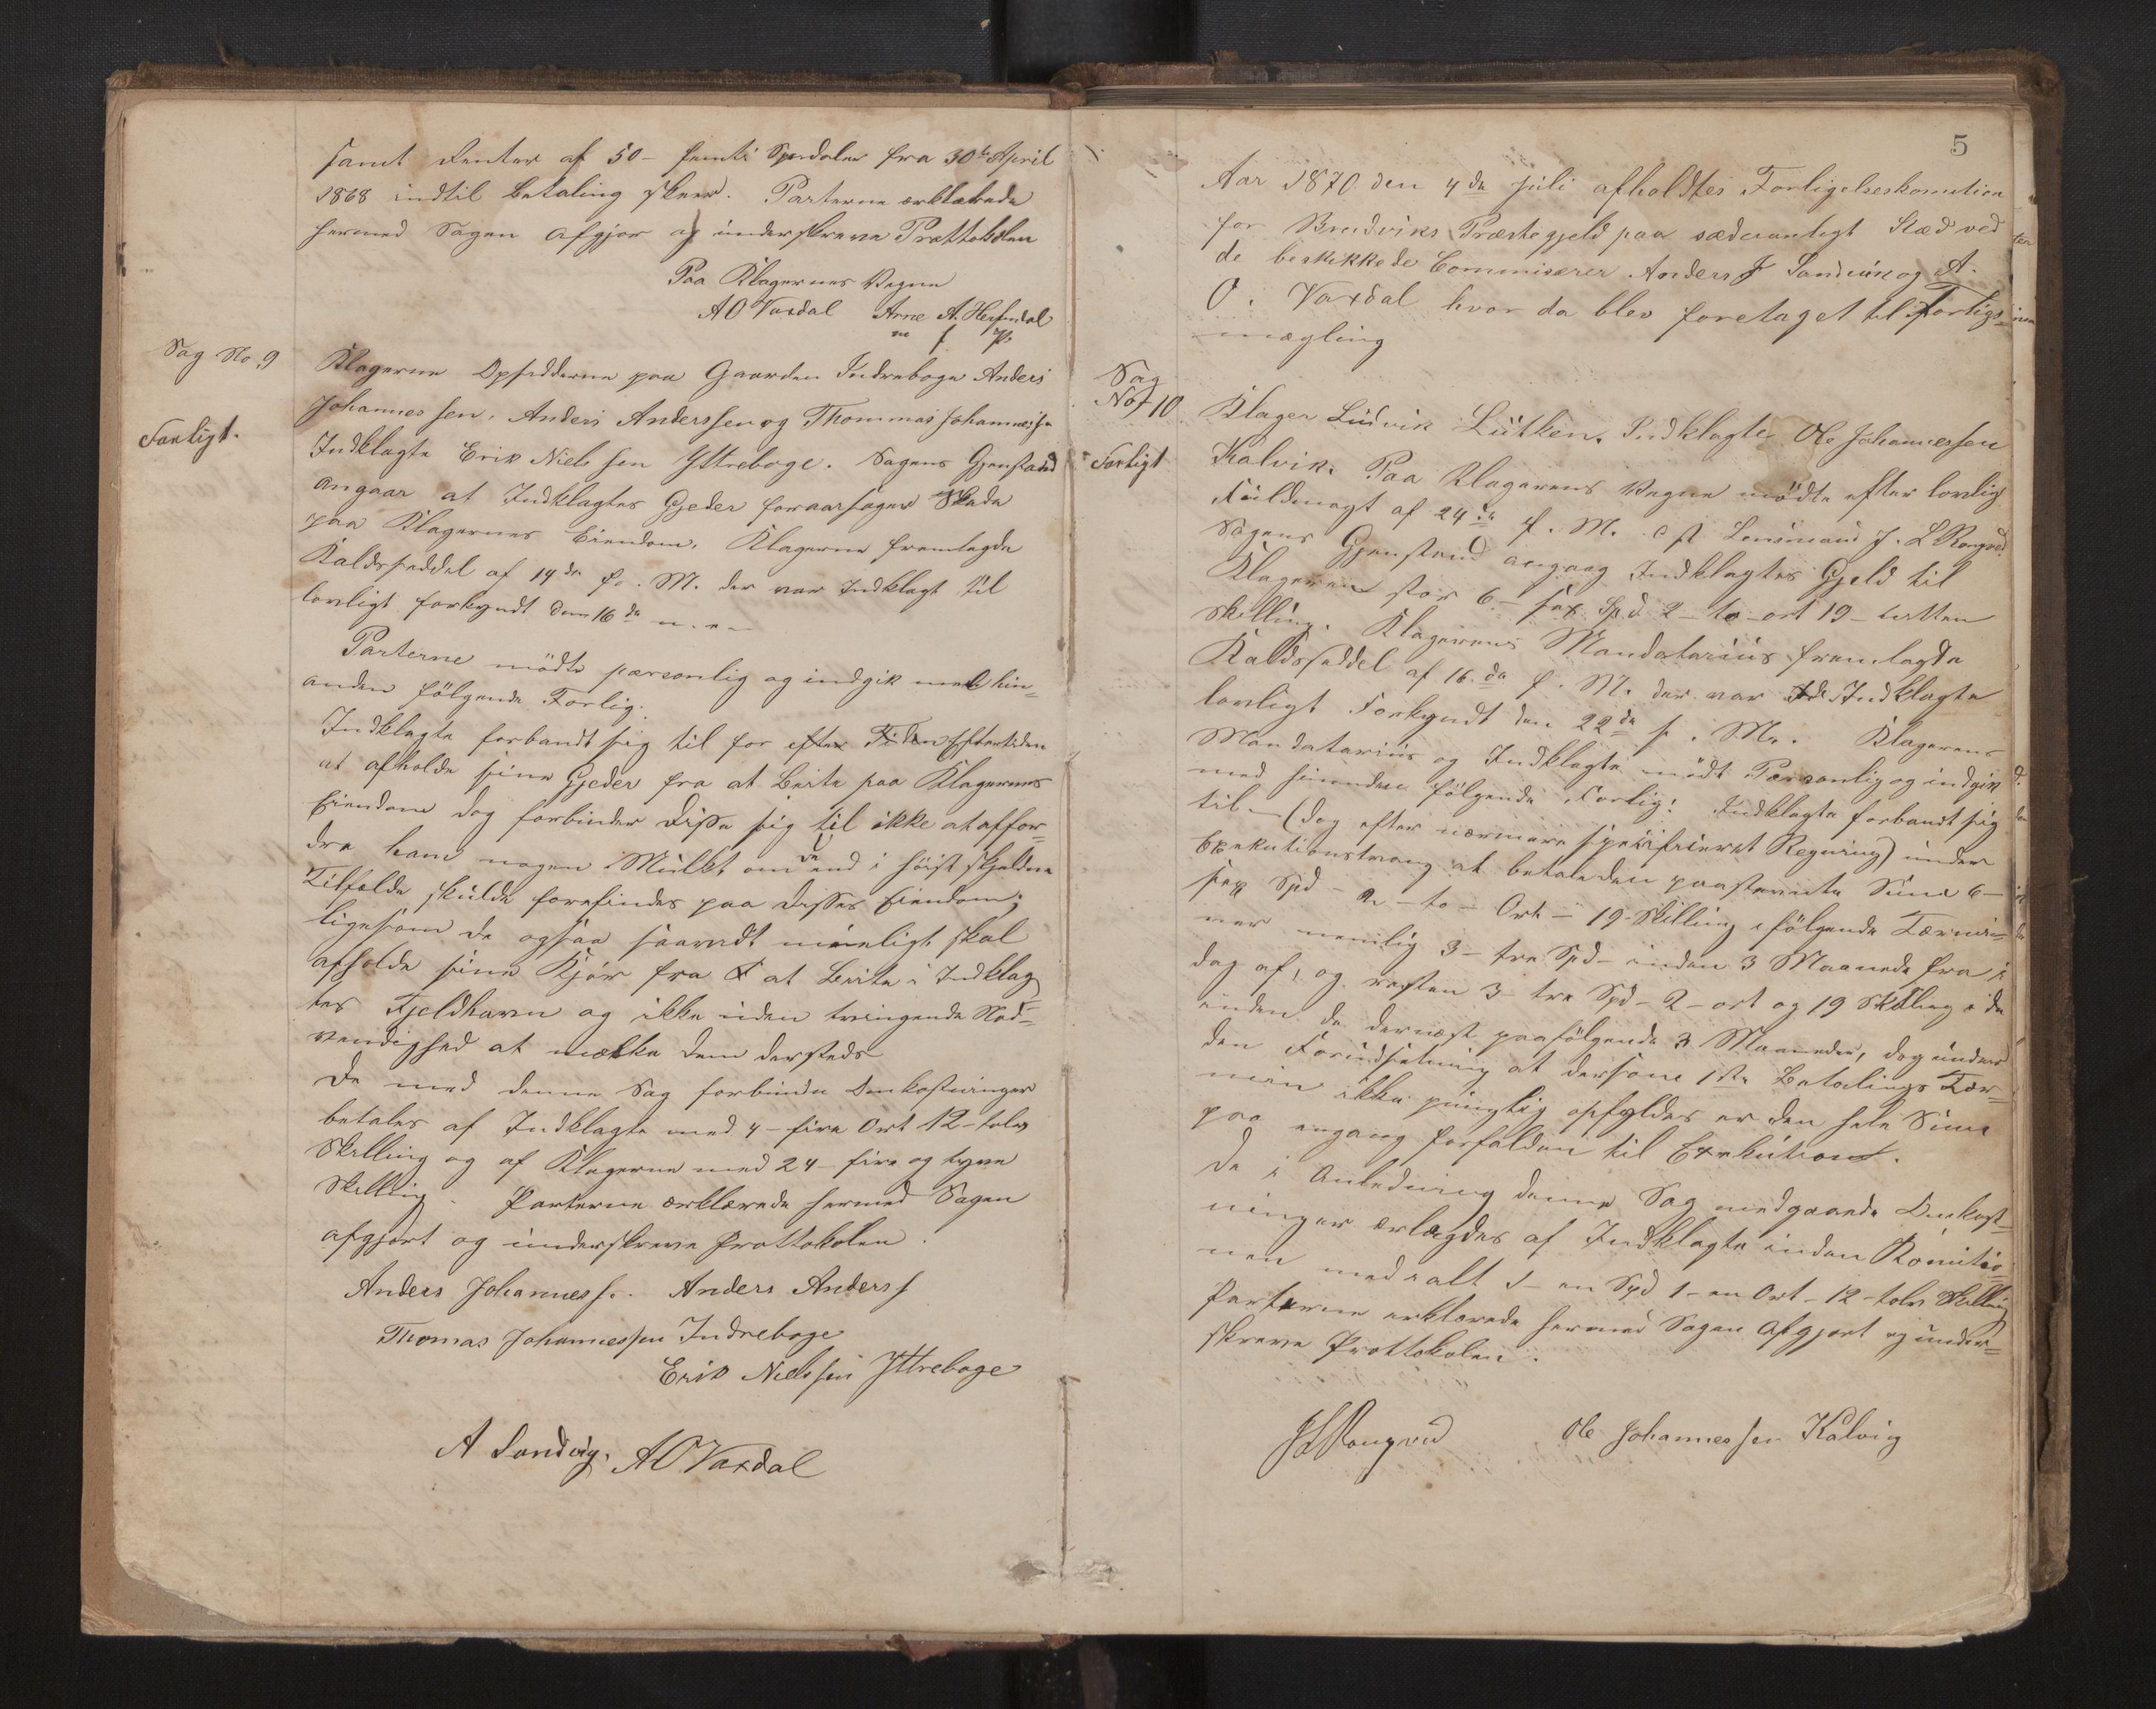 samt Renter af 50 - femti Spedaler fra 30te April
1868 indtil Betaling skeer. Parterne ærklærede
hermed Sagen afgjor og underskreve Prottokolen
Paa Klagernes Vegne
A O Vaxdal Arne A. Herfindal
m f P
Sag No 9
Klagerne Opsidderne paa Gaarden Indreboge Anders
Johannessen, Anders Anderssen og Thommas Johannesse
Forligt.
Indklagte Erik Nielssen Yttreboge. Sagens Gjenstand
angaar at Indklagtes Gjeder foraarsager Skade
paa Klagernes Eiendom. Klagerne fremlagde
Kaldsseddel af 14de f. M. der var Indklagt til
lovligt forkyndt den 16de
Parterne mödte personlig og indgik med hin=
anden fölgende Forlig.
Indklagte forbandt sig til for efter Tiden Eftertiden
at afholde sine Gjeder fra at Beite paa Klagernes
Eiendom dog forbinder Disse sig til ikke at affor=
dre ham nogen Mulkt om de end i höist sjeldne
Tilfælde skulde forefindes paa disses Eiendom;
ligesom de ogsaa saavidt mueligt skal
afholde sine Kjör fra at Beite i Indklag
tes Fjeldhavn og ikke uden tvingende Nöd=
vendighed at mælke dem dersteds
De med denne Sag forbundne Omkostninger
betales af Indklagte med 4 - fire Ort 12 - tolv
Skilling og af Klagerne med 24 - fire og tyve
Skilling. Parterne ærklærede hermed Sagen
afgjort og underskreve Prottokolen.
Anders Johanness. Anders Anderss
Thomas Johannessen Indreboge
Erik Nielssen Yttreboge
A Sandvig. A O Vaxdal
5
Aar 1870 den 4de Juli afholdtes Forligelseskomition
for Bredviks Præstegjeld paa sædvanligt Stæd ved
de beskikkede Commisærer Anders J Sandvik og A.
O. Vaxdal hvor da blev foretaget til Forligs=
mægling
Sag
No 10
Klager Ludvik Lütken. Indklagte Ole Johannessen
Forligt
Kalvik. Paa Klagerens Vegne mödte efter lovlig
Fuldmagt af 24de f. M. Lensmand J. L Rongved
Sagens Gjenstand angaag Indklagtes Gjeld til
Klageren stor 6 - sex Spd 2 - to - ort 19 - nitten
Skilling. Klagerens Mandatarius fremlagde
Kaldsseddel af 16de f. M. der var Indklagte
lovligt Forkyndt den 22de f. M. Klagerens
Mandatarius og Indklagte mödt Personlig og indgik
med hinanden fölgende Forlig: Indklagte forbandt sig
til - (dog efter nærmere spesifiseret Regning) under
Exekutionstvang at betale den paastevnte Sum 6 -
sex Spd - 2 - to - Ort - 19 - Skilling i fölgende Tærmi=
ner nemlig 3 - tre Spd - inden 3 Maaneder fra i
dag af, og resten 3 - tre Spd - 2 - ort og 19 Skilling
inden de dernæst paafölgende 3 Maaneder, dog under
den Forudsetning at dersom 1ste Betalings Tær=
min ikke pungtlig opfyldes er den hele Sum
paa engang forfalden til Exekution.
De i Anledning denne Sag medgaaede Omkost=
ninger ærlægdes af Indklagte inden Komitio=
nen med i alt 1 - en Spd 1 - en Ort - 12 - tolv Skilling
Parterne erklærede hermed Sagen afgjort og under=
skreve Prottokolen.
J L Rongved Ole Johannessen Kalvig